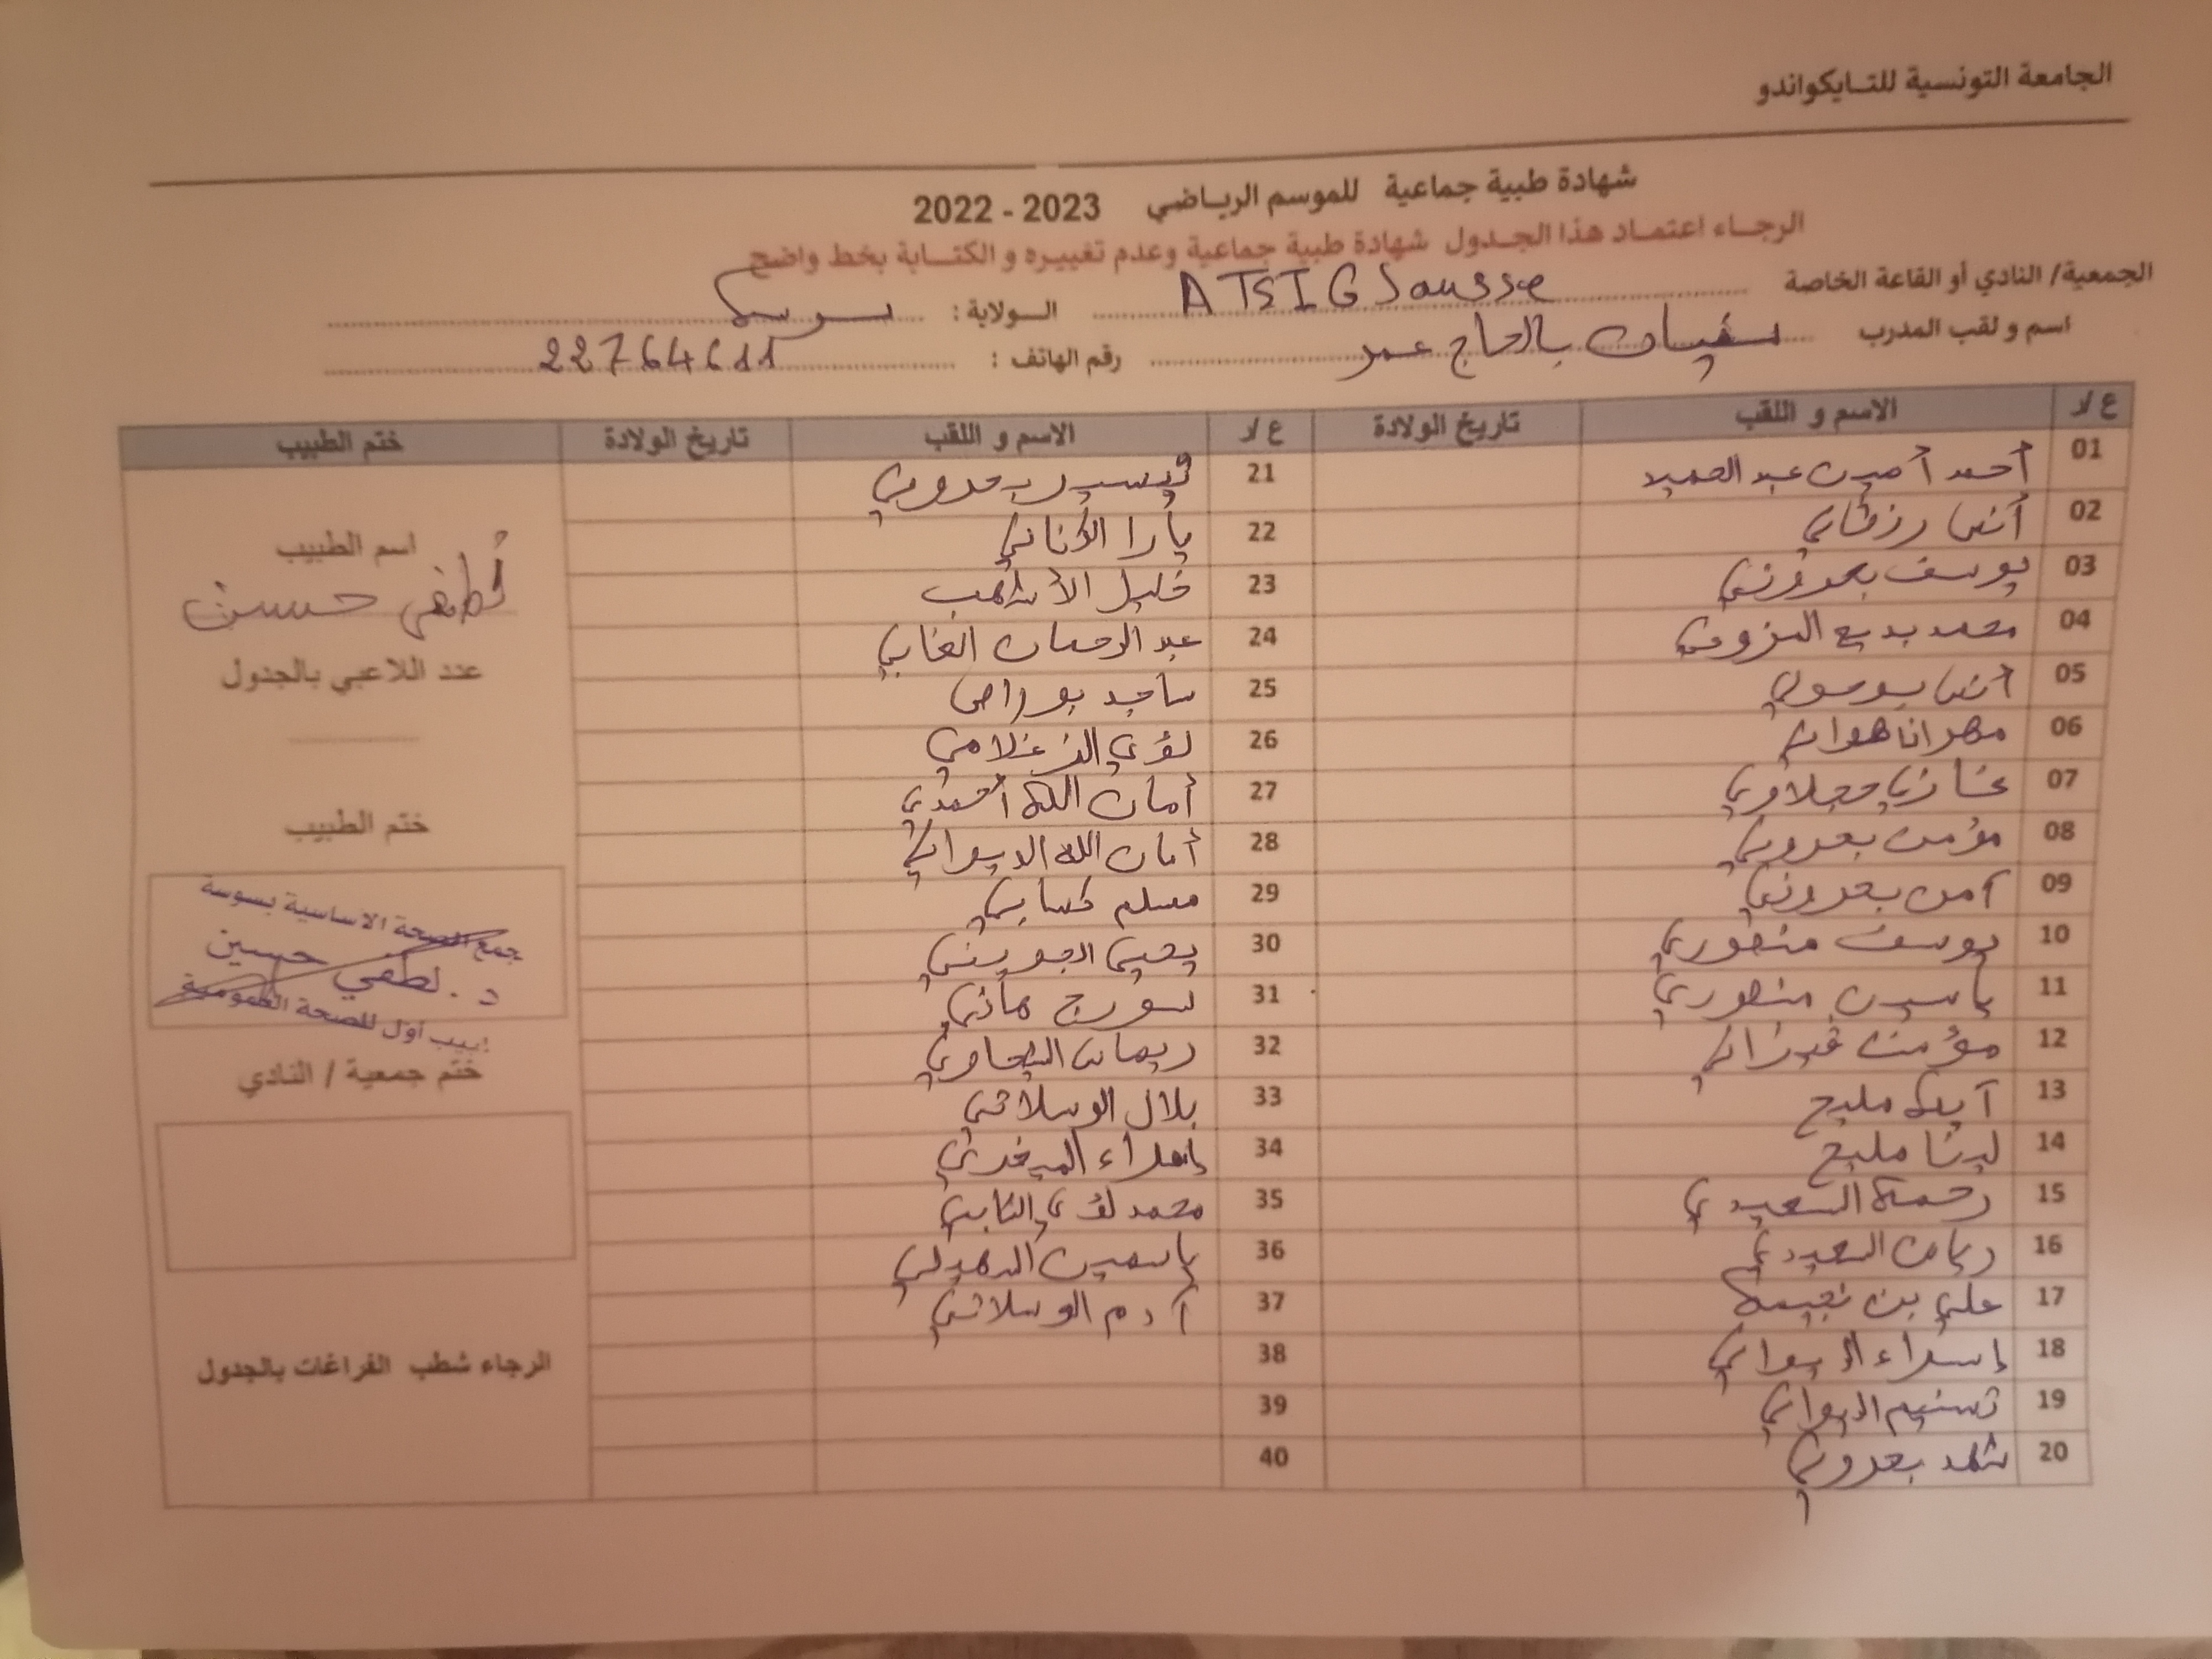 الجامعة التونسية للتايكواندو
شهادة طبية جماعية للموسم الرياضي 2023 - 2022
الرجاء اعتماد هذا الجدول شهادة طبية جماعية وعدم تغييره و الكتابة بخط واضح
الجمعية/ النادي أو القاعة الخاصة ATSIG Sousse الولاية : سوسة
اسم و لقب المدرب سفيان بالحاج عمر رقم الهاتف : 22764611
ع/ر الاسم و اللقب تاريخ الولادة ع/ر الاسم و اللقب تاريخ الولادة ختم الطبيب
01 أحمد أمين عبد الحميد
02 أنس رزقاني
03 يوسف بعزوني
04 محمد بديع
05 أنس
06
07
08 مؤمن بعزوني
09 آمن بعزوني
10 يوسف منصوري
11 ياسين منصوري
12 مؤمن
13 آية مليح
14 لينا مليح
15 رحمة السعيدي
16 ريان السعيدي
17 علي بن نجيمة
18 إسراء الديواني
19 تسنيم الديواني
20 شهد بعزوني
21
22 يارا
23 خليل الأشهب
24 عبد الرحمان الغابي
25 ساجد
26 لؤي الزغلامي
27 أمان الله أحمدي
28 أمان الله الديواني
29 مسلم كسابي
30 يحيى الجويني
31 هاني
32 ريهان
33 بلال الوسلاتي
34 إسراء
35 محمد لؤي
36 ياسمين
37 آدم الوسلاتي
38
39
40
اسم الطبيب
لطفي حسين
عدد اللاعبي بالجدول
ختم الطبيب
جمع الصحة الاساسية بسوسة
د. لطفي حسين
بيب أول للصحة العمومية
ختم جمعية / النادي
الرجاء شطب الفراغات بالجدول